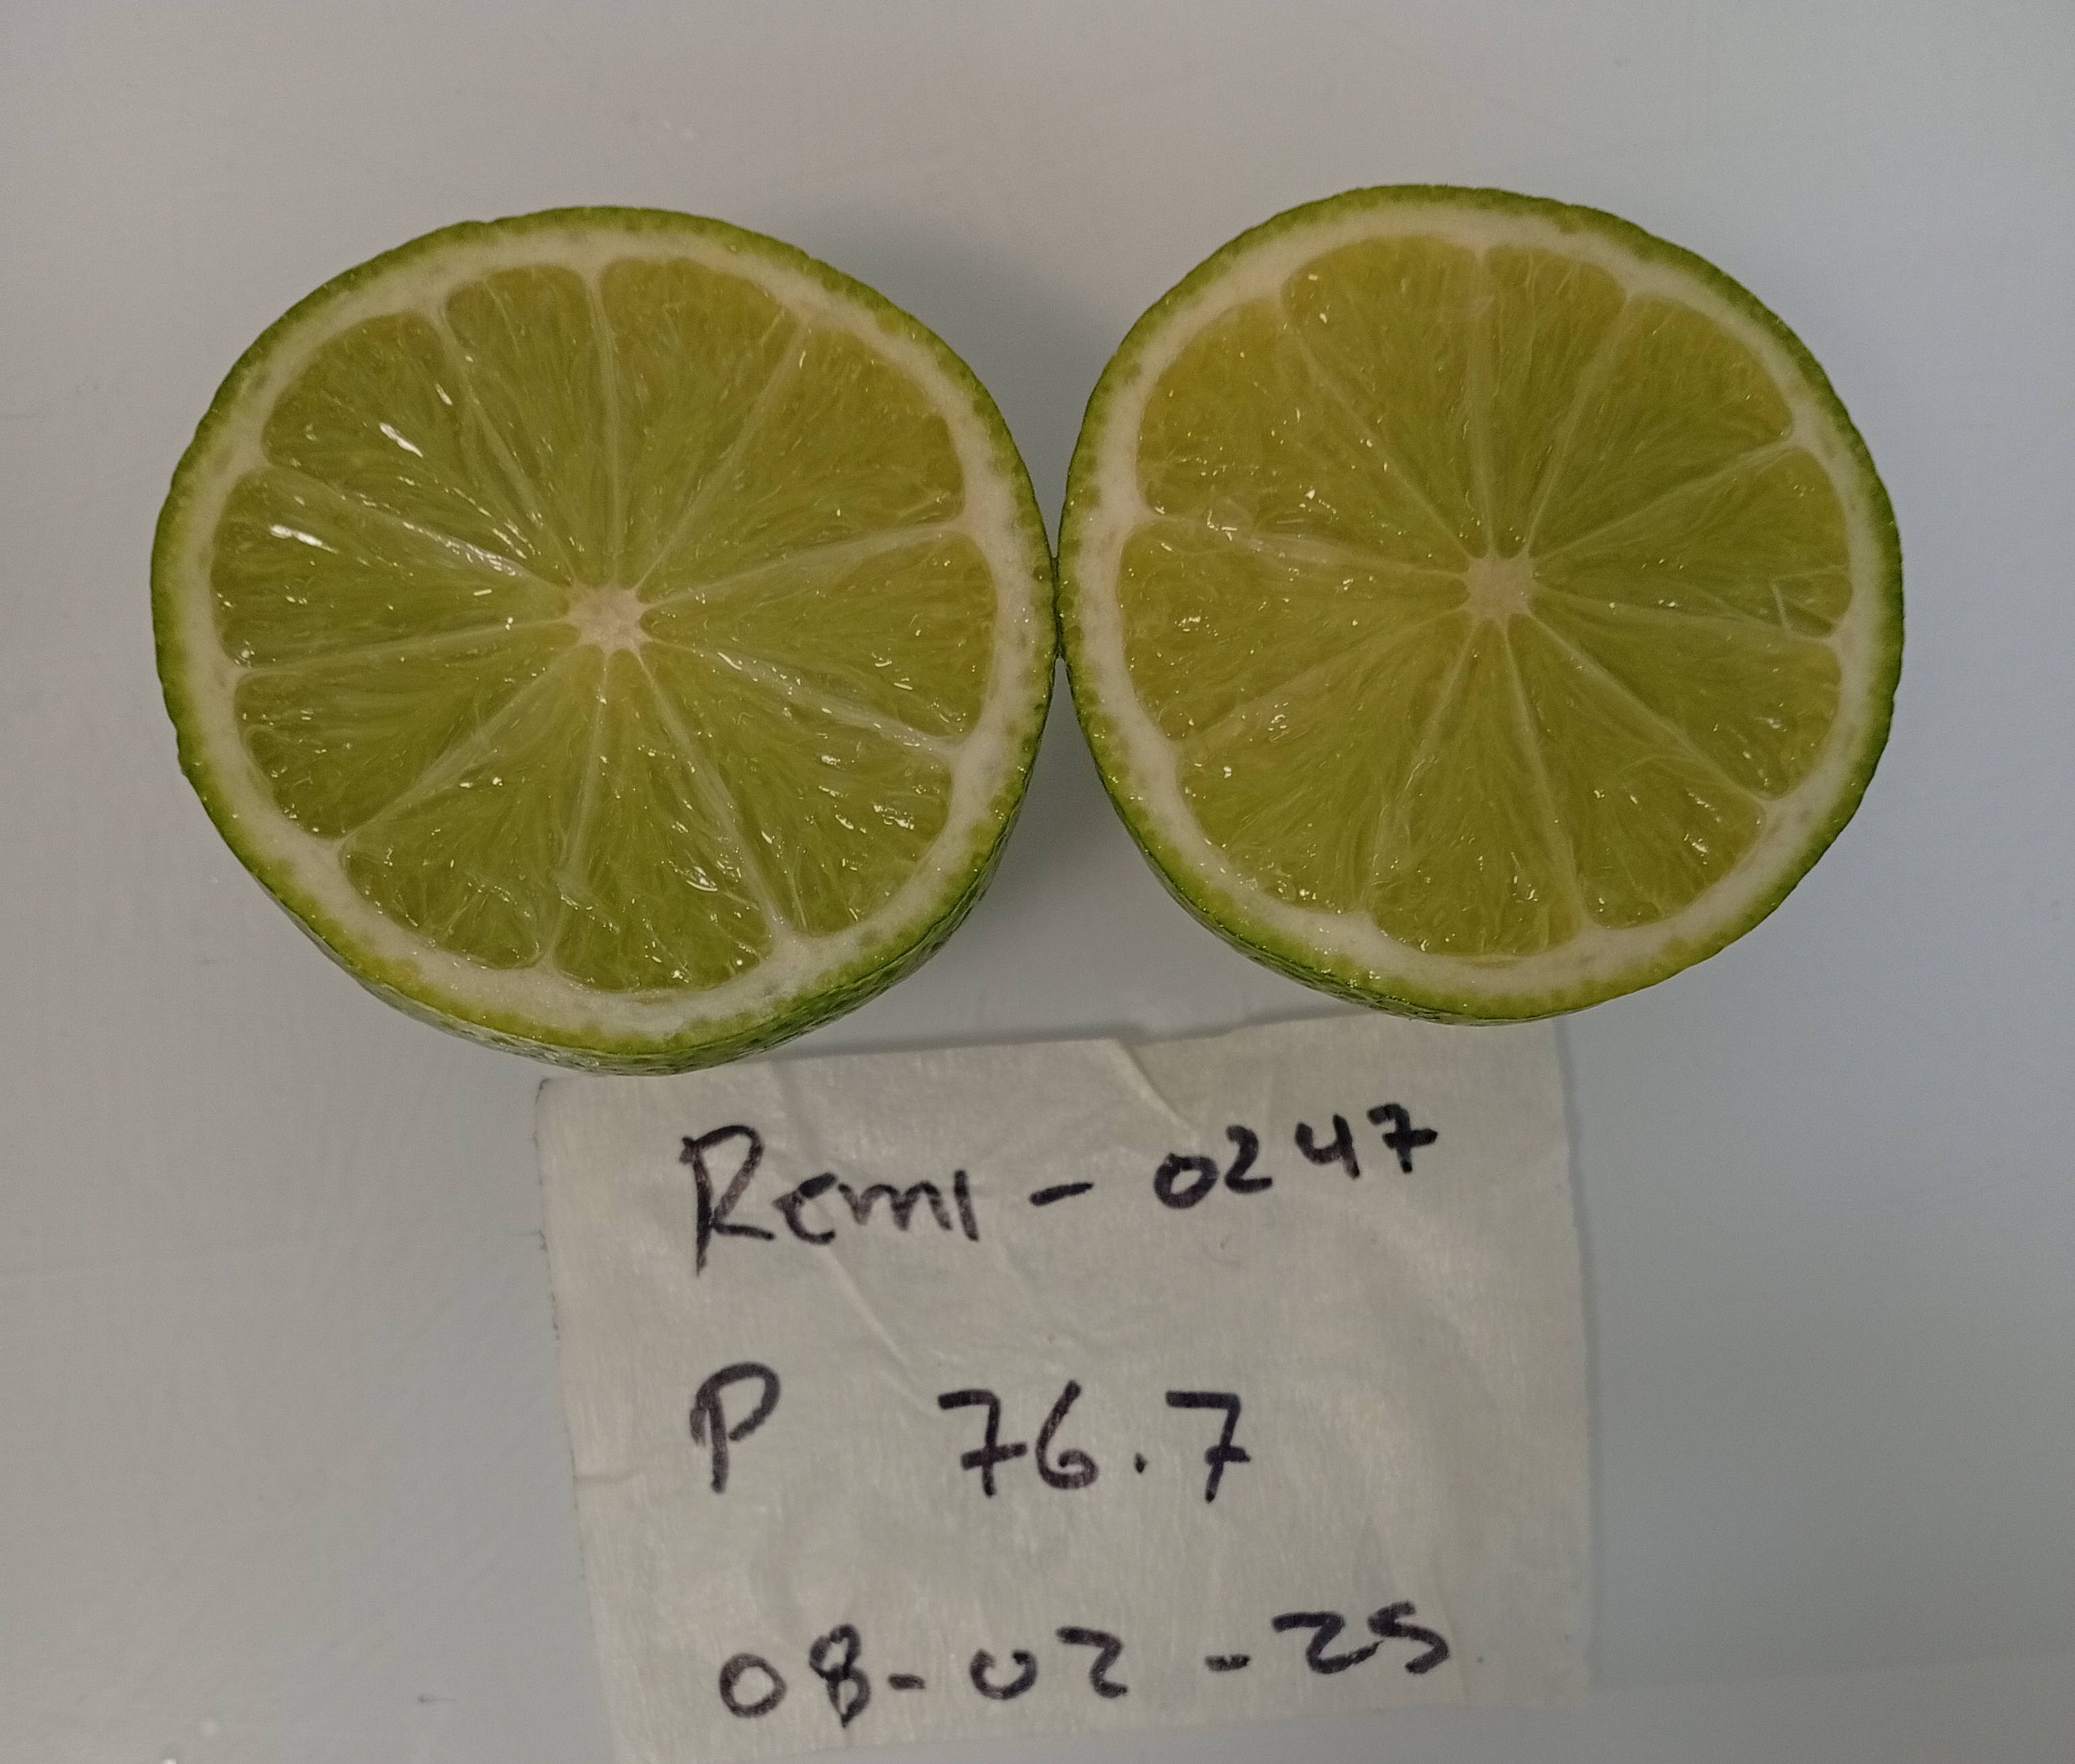 Remi - 0247
P 76.7
08-02-25